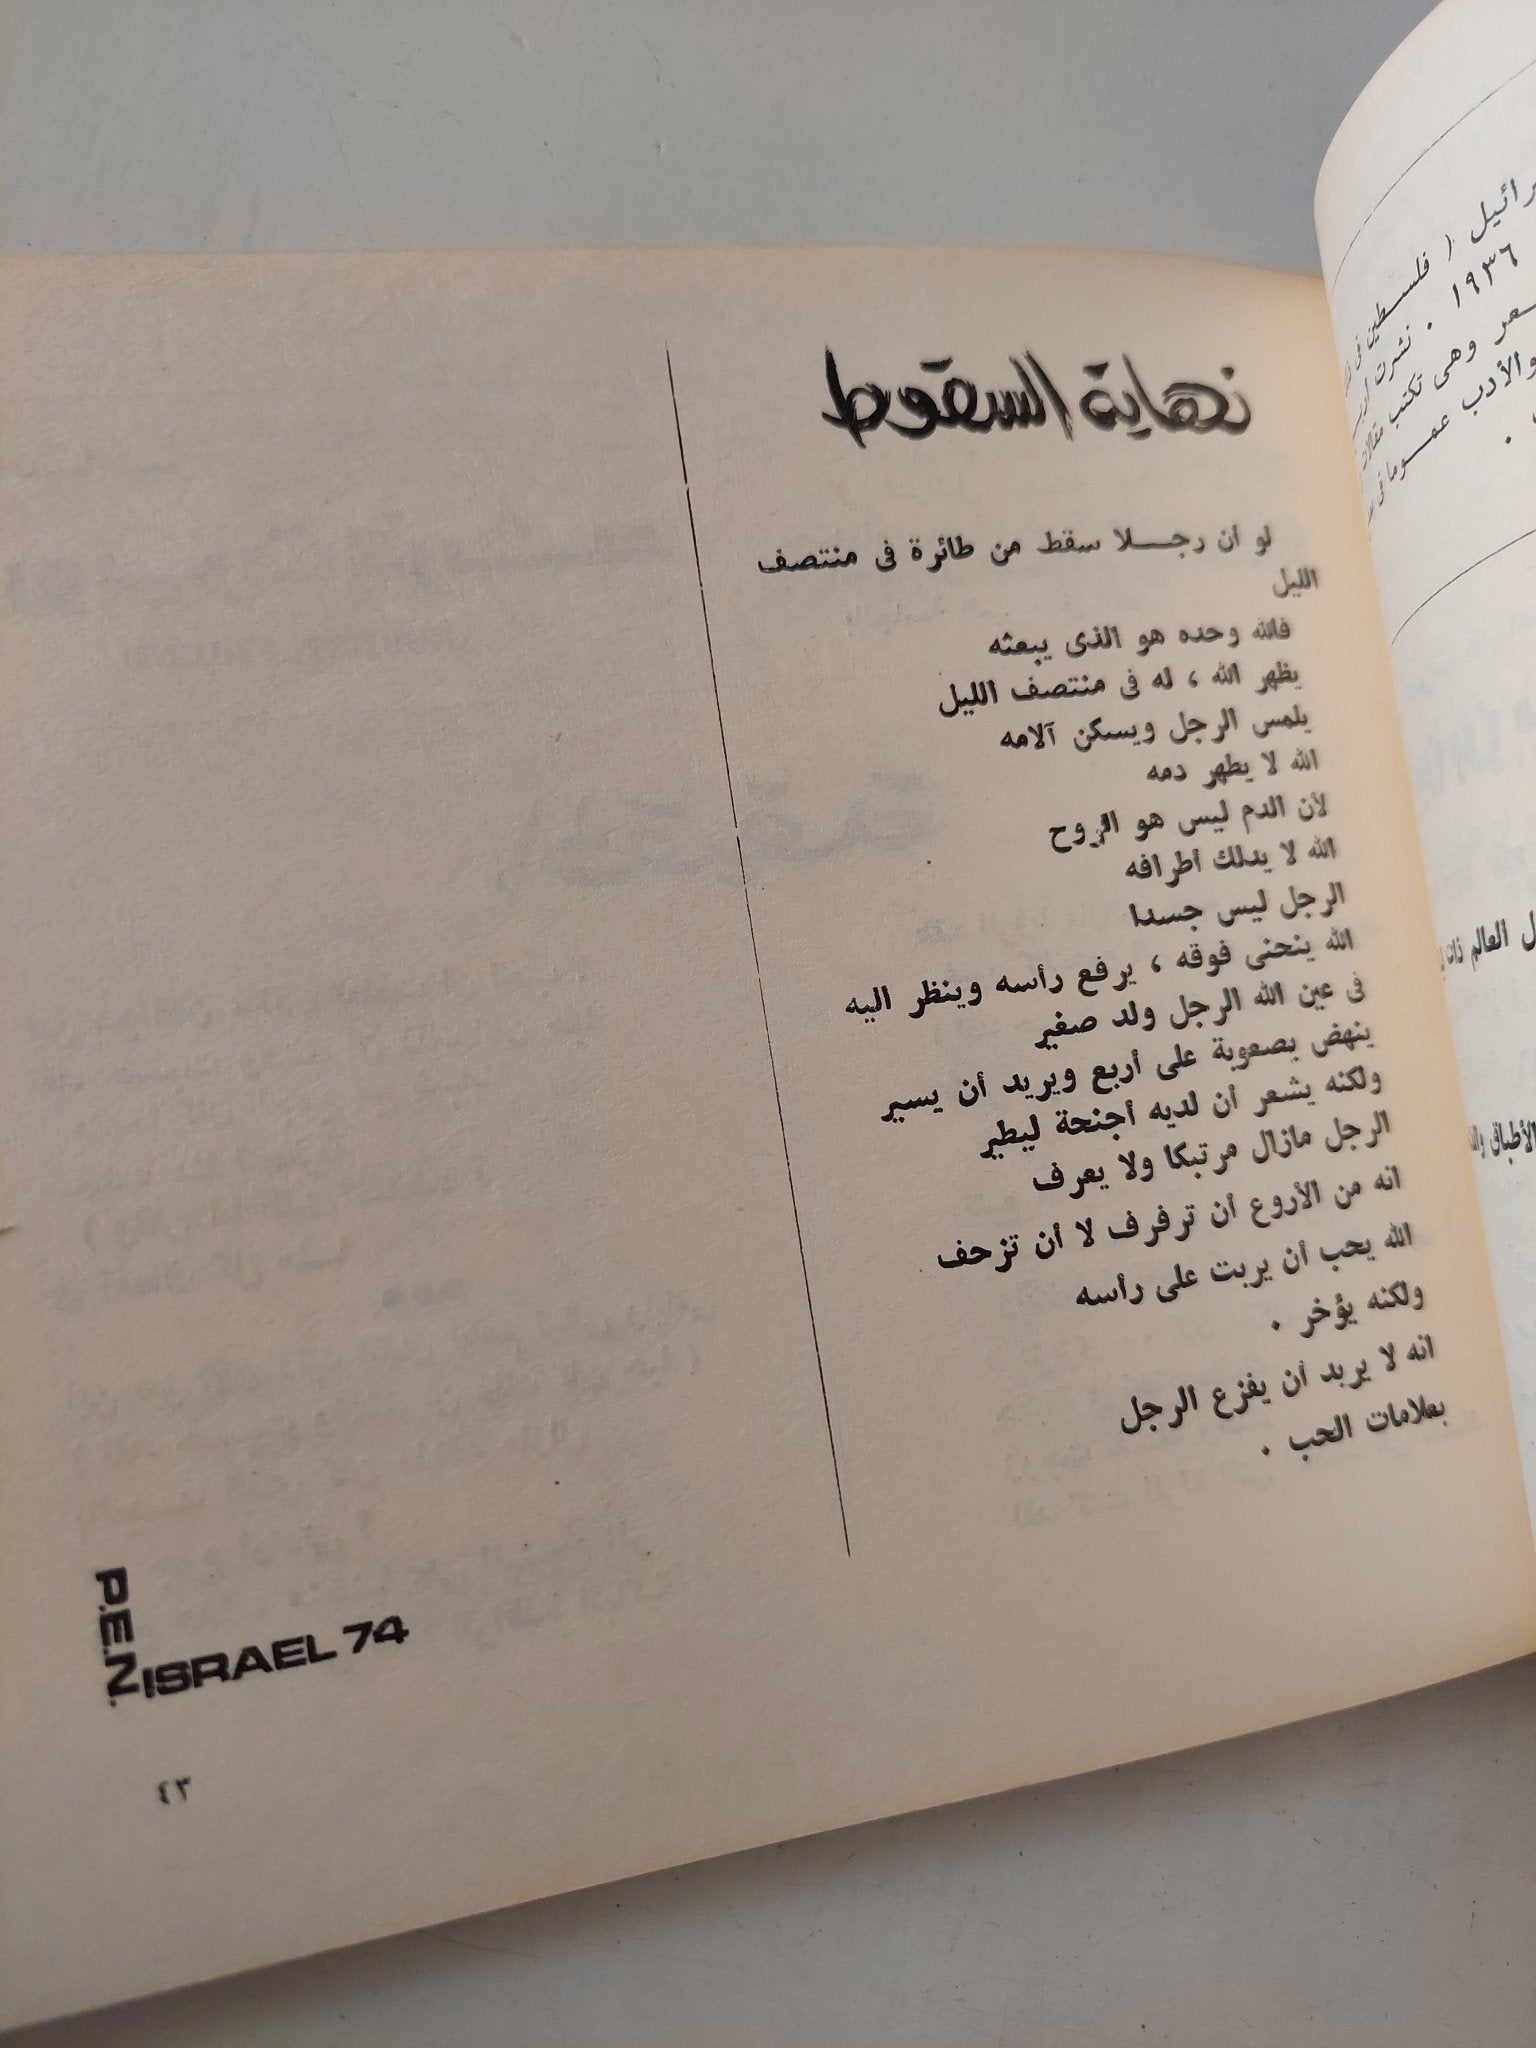 نهاية السقوط
لو أن رجـــلا سقط من طائرة فى منتصف
الليل
فالله وحده هو الذى يبعثه
يظهر الله ، له فى منتصف الليل
يلمس الرجل ويسكن آلامه
الله لا يطهر دمه
لأن الدم ليس هو الروح
الله لا يدلك أطرافه
الرجل ليس جسدا
الله ينحنى فوقه ، يرفع رأسه وينظر اليه
فى عين الله الرجل ولد صغير
ينهض بصعوبة على أربع ويريد أن يسير
ولكنه يشعر أن لديه أجنحة ليطير
الرجل مازال مرتبكا ولا يعرف
انه من الأروع أن ترفرف لا أن تزحف
الله يحب أن يربت على رأسه
ولكنه يؤخر .
انه لا يريد أن يفزع الرجل
بعلامات الحب .
P.E.N.
ISRAEL 74
٤٣
فلسطين فى
١٩٣٦ . نشرت
وهى تكتب مقالات
والأدب عمـــوما فى
العالم ذات
الأطباق